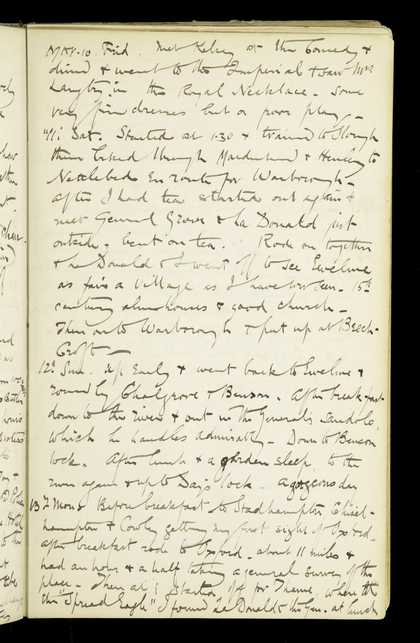 May. 10 Frid. Met Kelsey at the Comedy &
dined & went to the Imperial & saw Mrs
Langtry in the Royal Necklace. Some
very fine dresses but a poor play —
11th Sat. Started at 1.30 & trained to Slough
then biked through Maidenhead & Henley to
Nettlebed en route for Warborough —
After I had tea started out again &
met General Grove & La Donald just
outside. bent on tea. Rode on together
& La Donald & I went off to see Ewelme
as fair a village as I have ever seen. 15th
century almshouses & good church —
Then on to Warborough & put up at Beech-
Croft —
12th Sun. Up early & went back to Ewelme &
round by Chalgrove & Benson. After breakfast
down to the river & out in the General's sandolo,
which he handles admirably — Down to Benson
lock. After lunch & a garden sleep to the
river again & up to Day's lock. A gorgeous day
13th Mon. Before breakfast to Stadhampton Chisel-
hampton & Cowley getting my first sight of Oxford.
After breakfast rode to Oxford. about 11 miles &
had an hour & a half taking a general survey of the
place — Then at 1 started off for Thame, where at
the "Spread Eagle" I found La Donald & the Gen. at lunch